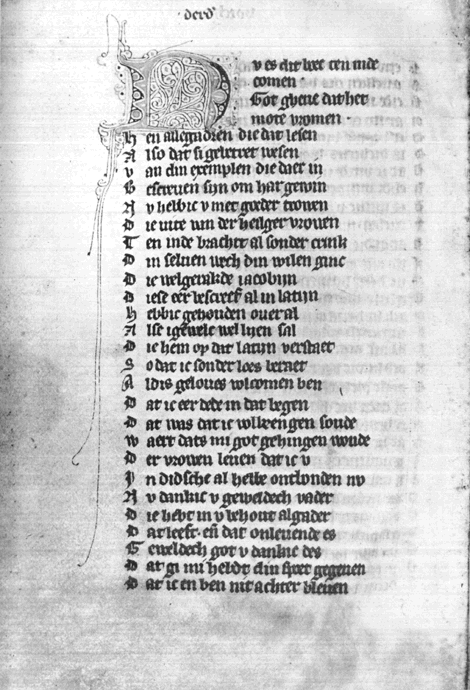 derd'
Nv es dit boec ten inde
comen .
Got gheue dat het
mote vromen .
H en allegadren die dat lesen
A lso dat si geletret wesen
V an din exemplen die daer in
B escreuen sijn om har gewin
N v hebbic v met goeder trowen
D ie uite van der heilger vrowen
T en inde bracht al sonder crink
D in seluen wech din wilen ginc
D ie welgerakde iacobijn
D iese eer bescreef al in latijn
H ebbic gehouden oueral
A lse wel lijen sal
D ie hem op dat latijn verstaet
S o dat ic sonder loes beraet
A ldis geloues volcomen ben
D at ic eer dede in dat began
D at was dat ic volbrengen soude
W aert dats mi got gehingen woude
D er vrowen leuen dat ic v
I n didsche al hebbe ontbonden nv
N v dankic v geweldech vader
D ie hebt in v behout algader
D at leeft en̄ dat onleuende es
G eweldech got v dankic des
D at gi mi hebdt din spoet gegeuen
D at ic en ben nit achter bleuen